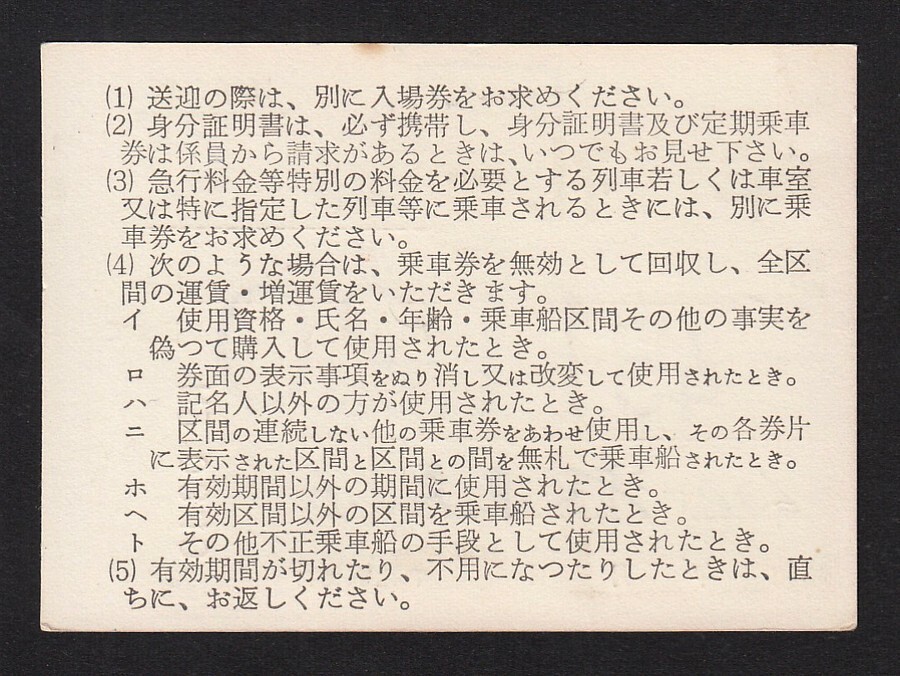 (1) 送迎の際は、別に入場券をお求めください。
(2) 身分証明書は、必ず携帯し、身分証明書及び定期乗車
券は係員から請求があるときは、いつでもお見せ下さい。
(3) 急行料金等特別の料金を必要とする列車若しくは車室
又は特に指定した列車等に乗車されるときには、別に乗
車券をお求めください。
(4) 次のような場合は、乗車券を無効として回収し、全区
間の運賃・増運賃をいただきます。
イ 使用資格・氏名・年齢・乗車船区間その他の事実を
偽つて購入して使用されたとき。
ロ 券面の表示事項をぬり消し又は改変して使用されたとき。
ハ 記名人以外の方が使用されたとき。
ニ 区間の連続しない他の乗車券をあわせ使用し、その各券片
に表示された区間と区間との間を無札で乗車船されたとき。
ホ 有効期間以外の期間に使用されたとき。
ヘ 有効区間以外の区間を乗車船されたとき。
ト その他不正乗車船の手段として使用されたとき。
(5) 有効期間が切れたり、不用になつたりしたときは、直
ちに、お返しください。